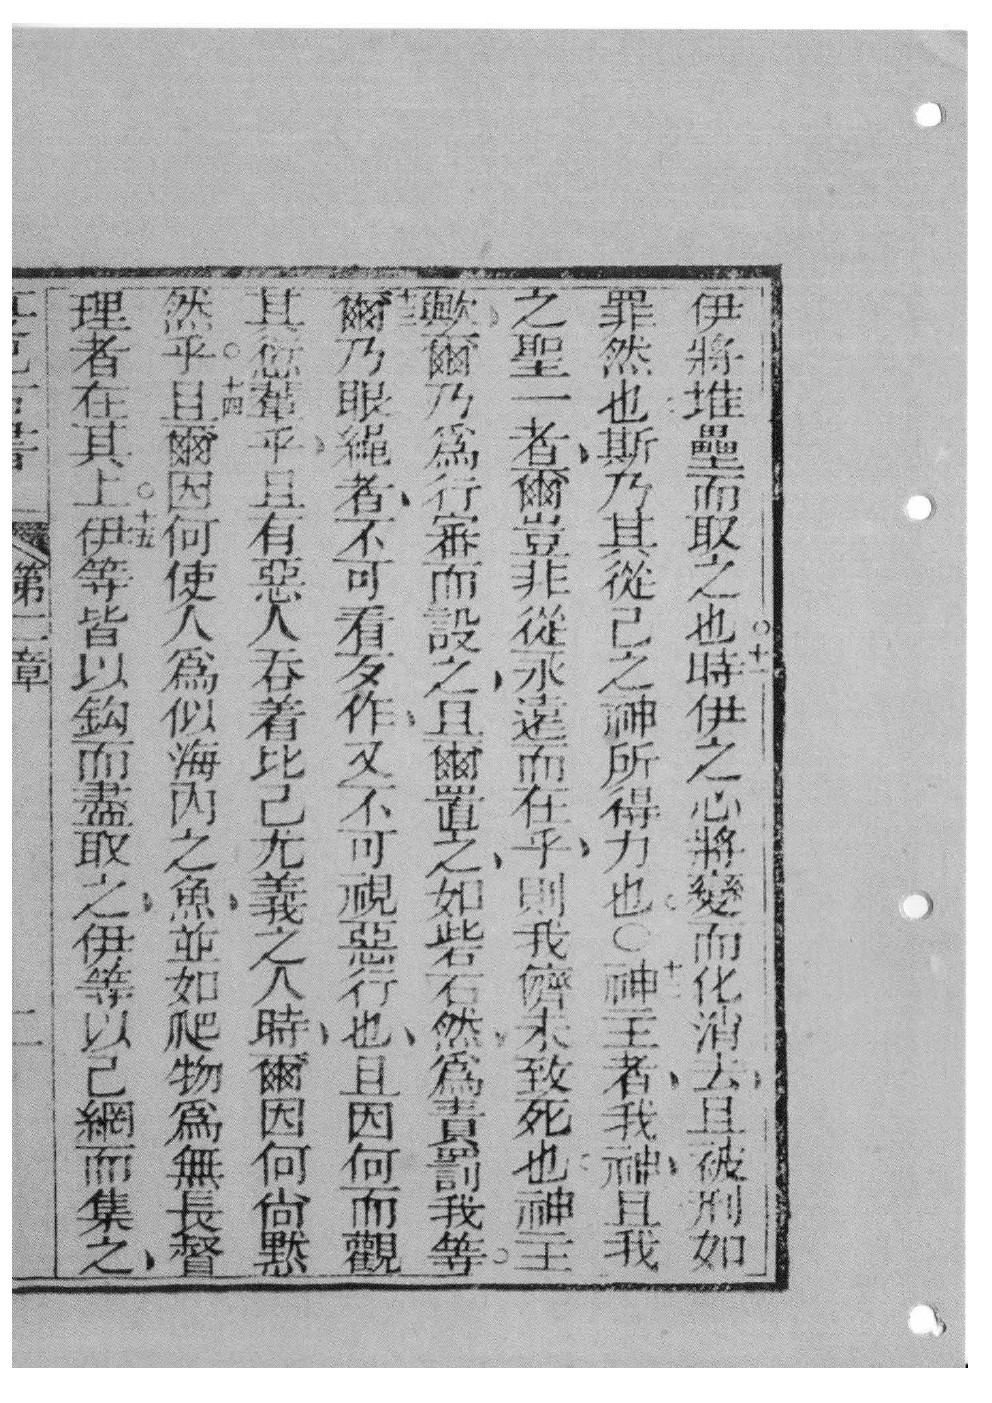 伊將堆壘而取之也○十一時伊之心將變而化消去且被刑如
罪然也斯乃其從己之神所得力也○十二神王者我神且我
之聖一者爾豈非從永遠而在乎則我儕未致死也神王
歟爾乃爲行審而設之且爾置之如砦石然爲責罰我等
十三爾乃眼繩者不可看歹作又不可視惡行也且因何而觀
其愆輩乎且有惡人吞着比己尤義之人時爾因何尙默
然乎○十四且爾因何使人爲似海內之魚並如爬物爲無長督
理者在其上○十五伊等皆以鈎而盡取之伊等以己網而集之
書 第 章 二